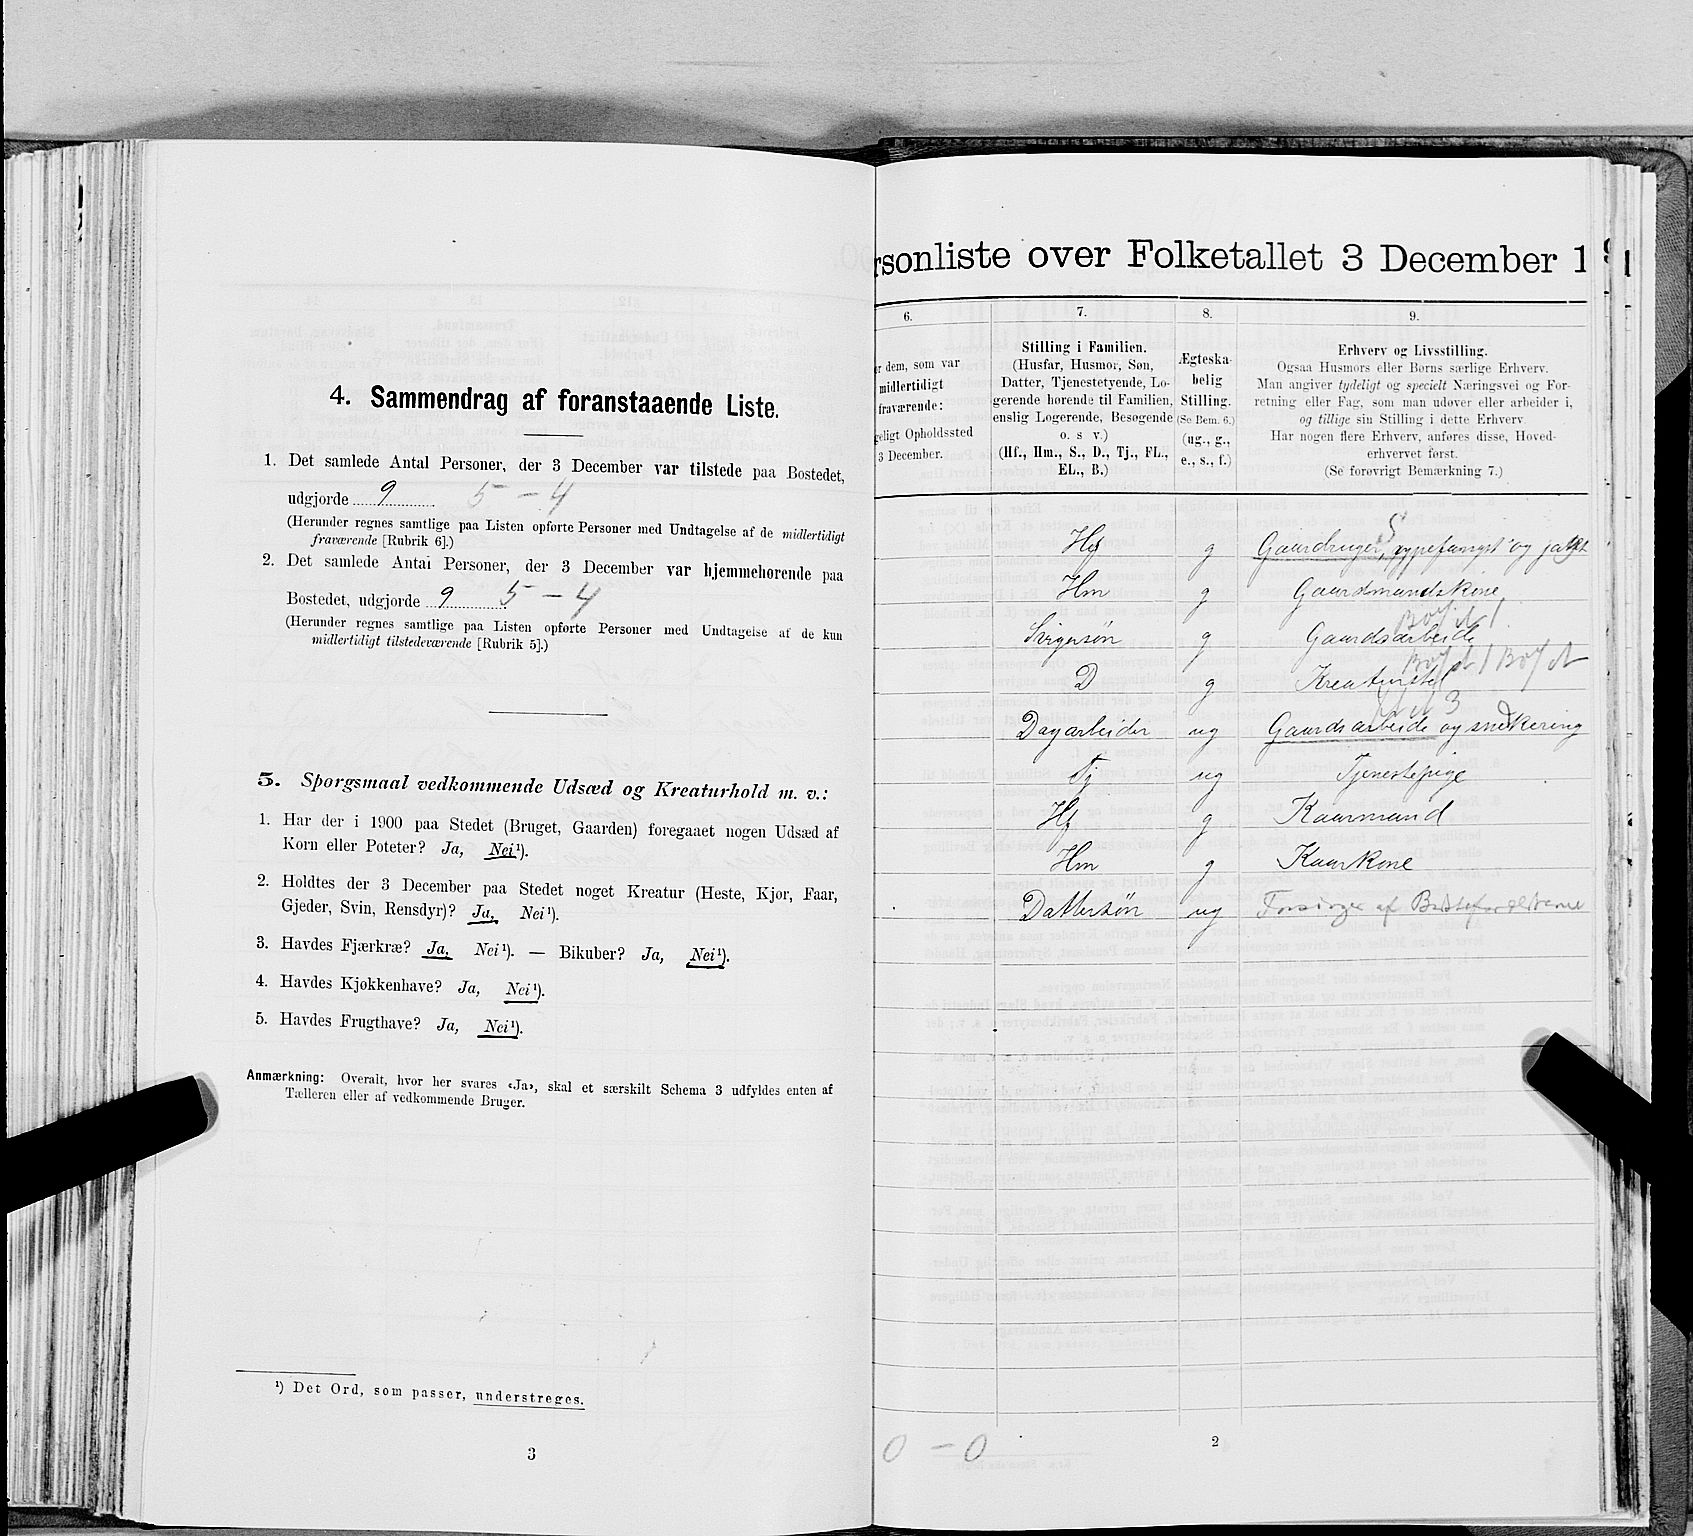 4. Sammendrag af foranstaaende Liste.
1. Det samlede Antal Personer, der 3 December var tilstede paa Bostedet,
udgjorde 9 5 - 4
(Herunder regnes samtlige paa Listen opførte Personer med Undtagelse af de midlertidigt
fraværende [Rubrik 6].)
2. Det samlede Antal Personer, der 3 December var hjemmehørende paa
Bostedet, udgjorde 9 5 - 4
(Herunder regnes samtlige paa Listen opførte Personer med Undtagelse af de kun
midlertidigt tilstedeværende [Rubrik 5].)
5. Spørgsmaal vedkommende Udsæd og Kreaturhold m. v.:
1. Har der i 1900 paa Stedet (Bruget, Gaarden) foregaaet nogen Udsæd af
Korn eller Poteter? Ja, Nei¹).
2. Holdtes der 3 December paa Stedet noget Kreatur (Heste, Kjør, Faar,
Gjeder, Svin, Rensdyr)? Ja, Nei¹).
3. Havdes Fjærkræ? Ja, Nei¹). — Bikuber? Ja, Nei¹).
4. Havdes Kjøkkenhave? Ja, Nei¹).
5. Havdes Frugthave? Ja, Nei¹).
Anmærkning: Overalt, hvor her svares «Ja», skal et særskilt Schema 3 udfyldes enten af
Tælleren eller af vedkommende Bruger.
¹) Det Ord, som passer, understreges.
3
rsonliste over Folketallet 3 December 1
6.
7.
8.
9.
r dem, som var
midlertidigt
fraværende:
geligt Opholdssted
3 December.
Stilling i Familien.
(Husfar, Husmor, Søn,
Datter, Tjenestetyende, Lo-
gerende hørende til Familien,
enslig Logerende, Besøgende
o. s v.)
(Hf., Hm., S., D., Tj., FL.,
EL., B.)
Ægteska-
belig
Stilling.
(Se Bem. 6.)
(ug., g.,
e., s., f.)
Erhverv og Livsstilling.
Ogsaa Husmors eller Børns særlige Erhverv.
Man angiver tydeligt og specielt Næringsvei og For-
retning eller Fag, som man udøver eller arbeider i,
og tillige sin Stilling i dette Erhverv
Har nogen flere Erhverv, anføres disse, Hoved-
erhvervet først.
(Se forøvrigt Bemærkning 7.)
Hf g Gaardbruger, rypefangst og jagt
Hm g Gaardmandskone
Svigersøn g Gaardsarbeide
D g Kreaturstel
Dagarbeider ug Gaardsarbeide og snekering
Tj ug Tjenestepige
Hf g Kaarmand
Hm g Kaarkone
Dattersøn ug Forsørges af Bedsteforældrene
0 - 0
2